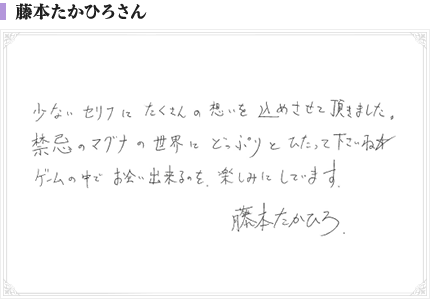 藤本たかひろさん
少ないセリフにたくさんの想いを込めさせて頂きました。
禁忌のマグナの世界にどっぷりとひたって下さいね☆
ゲームの中でお会い出来るのを、楽しみにしています。
藤本たかひろ.